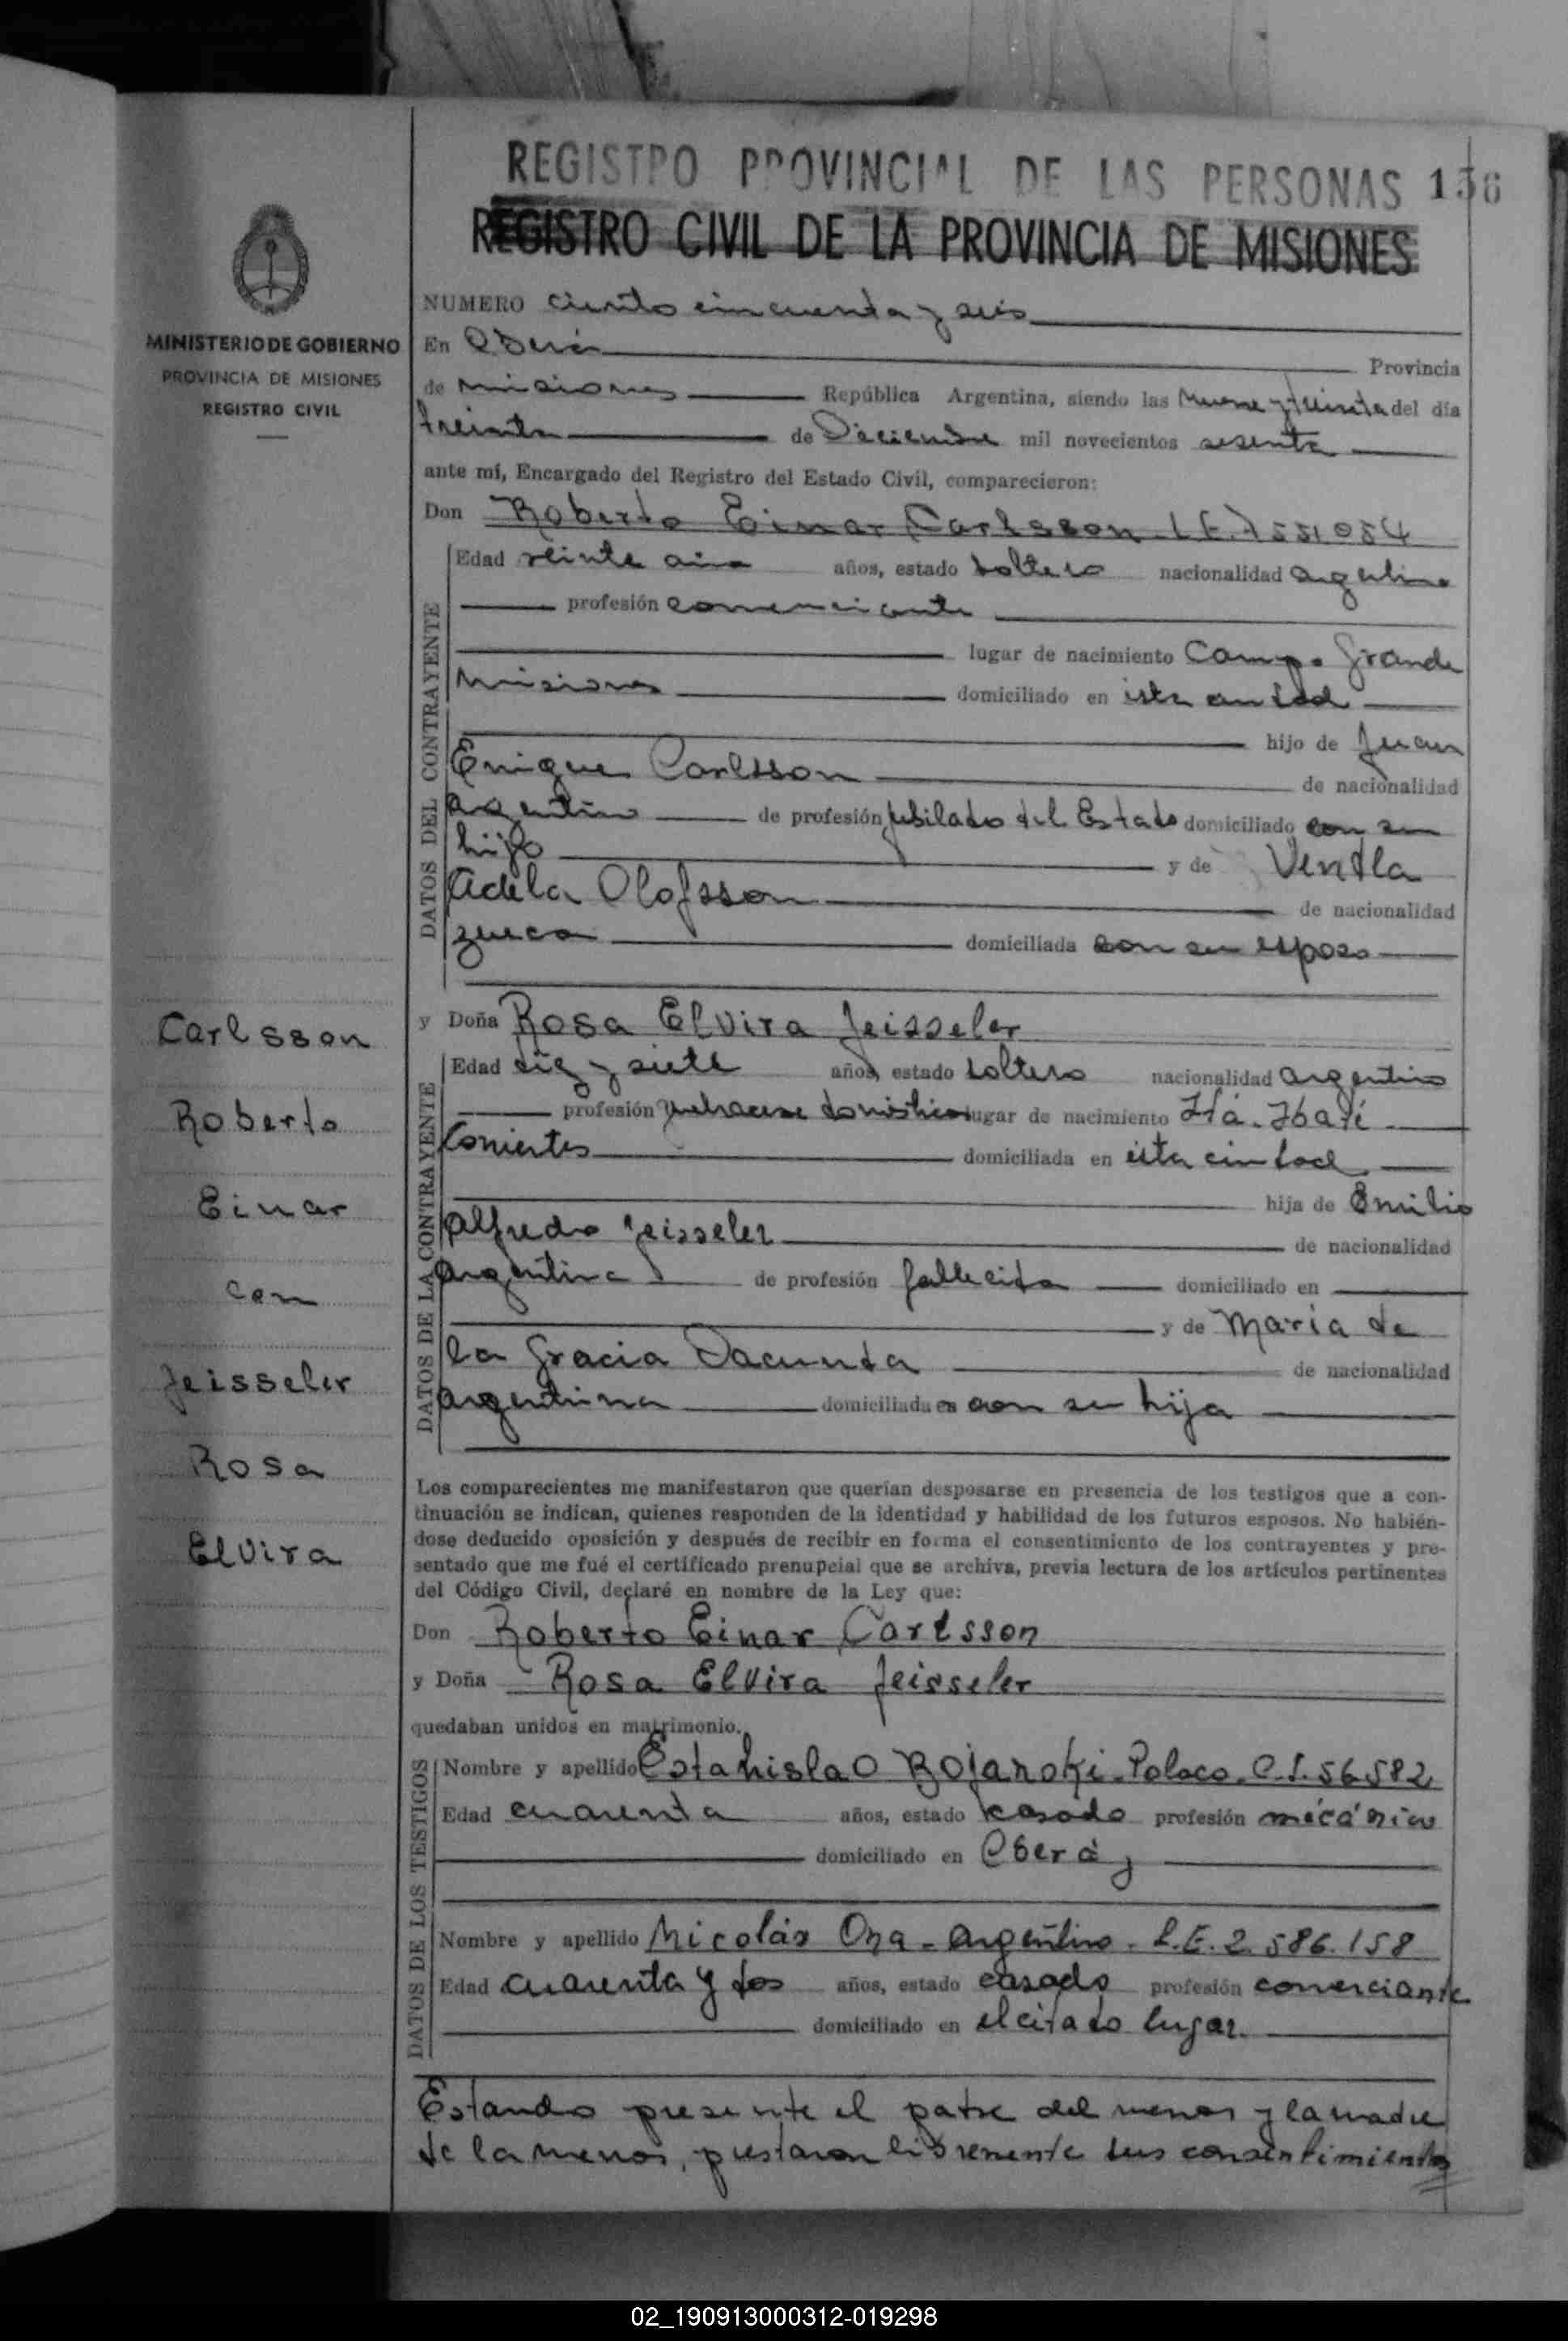 REGISTRO PROVINCIAL DE LAS PERSONAS 156
REGISTRO CIVIL DE LA PROVINCIA DE MISIONES
MINISTERIO DE GOBIERNO
PROVINCIA DE MISIONES
REGISTRO CIVIL
NUMERO ciento cincuenta y seis
En Oberá
Provincia
de Misiones República Argentina, siendo las nueve y treinta del día
treinta de Diciembre mil novecientos sesenta
ante mí, Encargado del Registro del Estado Civil, comparecieron:
Don Roberto Einar Carlsson L.E. 7551054
DATOS DEL CONTRAYENTE
Edad veinte años, estado soltero nacionalidad argentino
profesión comerciante
lugar de nacimiento Campo Grande
Misiones domiciliado en esta ciudad
hijo de Juan
Enrique Carlsson de nacionalidad
argentino de profesión jubilado del Estado domiciliado con su
hijo y de Vendla
Adela Olofsson de nacionalidad
zueca domiciliada con su esposo
y Doña Rosa Elvira Jeisseler
DATOS DE LA CONTRAYENTE
Edad diez y siete años, estado soltera nacionalidad argentina
profesión quehacere domésticos lugar de nacimiento Itá-Ibaté
Corrientes domiciliada en esta ciudad
hija de Emilio
Alfredo Jeisseler de nacionalidad
argentina de profesión fallecido domiciliado en
y de María de
la Gracia Dacunda de nacionalidad
argentina domiciliada en con su hija
Carlsson
Roberto
Einar
con
Jeisseler
Rosa
Elvira
Los comparecientes me manifestaron que querían desposarse en presencia de los testigos que a con-
tinuación se indican, quienes responden de la identidad y habilidad de los futuros esposos. No habién-
dose deducido oposición y después de recibir en forma el consentimiento de los contrayentes y pre-
sentado que me fué el certificado prenupcial que se archiva, previa lectura de los artículos pertinentes
del Código Civil, declaré en nombre de la Ley que:
Don Roberto Einar Carlsson
y Doña Rosa Elvira Jeisseler
quedaban unidos en matrimonio.
DATOS DE LOS TESTIGOS
Nombre y apellido Estanislao Bojanoki-Polaco-C.I. 56582
Edad cuarenta años, estado casado profesión mécánico
domiciliado en Oberá,
Nombre y apellido Nicolás Ona-argentino-L.E. 2.586.158
Edad cuarenta y dos años, estado casado profesión comerciante
domiciliado en el citado lugar.
Estando presente el padre del menor y la madre
de la menor, prestaron libremente sus consentimientos
02_190913000312-019298